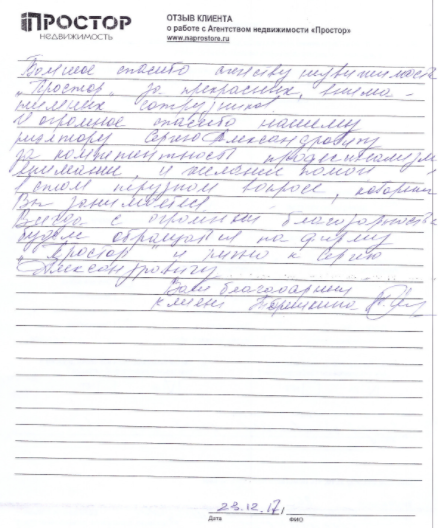 ПРОСТОР
НЕДВИЖИМОСТЬ
ОТЗЫВ КЛИЕНТА
о работе с Агентством недвижимости «Простор»
www.naprostore.ru
Большое спасибо агенству недвижимости
„Простор" за прекрасных, внима-
тельных сотрудников
И огромное спасибо нашему
риэлтору Сергею Александровичу
за компетентность профессионализм
внимание, и желание помочь
в этом трудном вопросе, которым
Вы занимаетесь
Всегда с огромной благодарностью
будем обращаться на фирму
„Простор" и лично к Сергею
Александровичу
Ваш благодарный
клиент
23.12.17,
Дата
ФИО